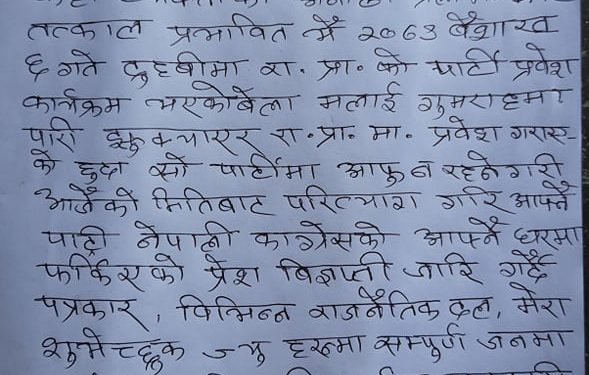 तत्काल प्रभावित भै २०६३ बैशाख
६ गते दुहबीमा रा. प्रा. को पार्टी प्रवेश
कार्यक्रम भएकोबेला मलाई गुमराहमा
पारी झुक्याएर रा.प्रा. मा. प्रवेश गराए-
को हुदा सो पार्टीमा आफु न रहनेगरी
आजैको मितिबाट परित्याग गरि आफ्नै
पार्ट्री नेपाली काग्रेसको आफ्नै घरमा
फर्किएको प्रेश बिज्ञप्ती जारि गर्दै
पत्रकार, विभिन्न राजनैतिक दल, मेरा
शुभेच्छुक ज्यु हरूमा सम्पुर्ण जनमा